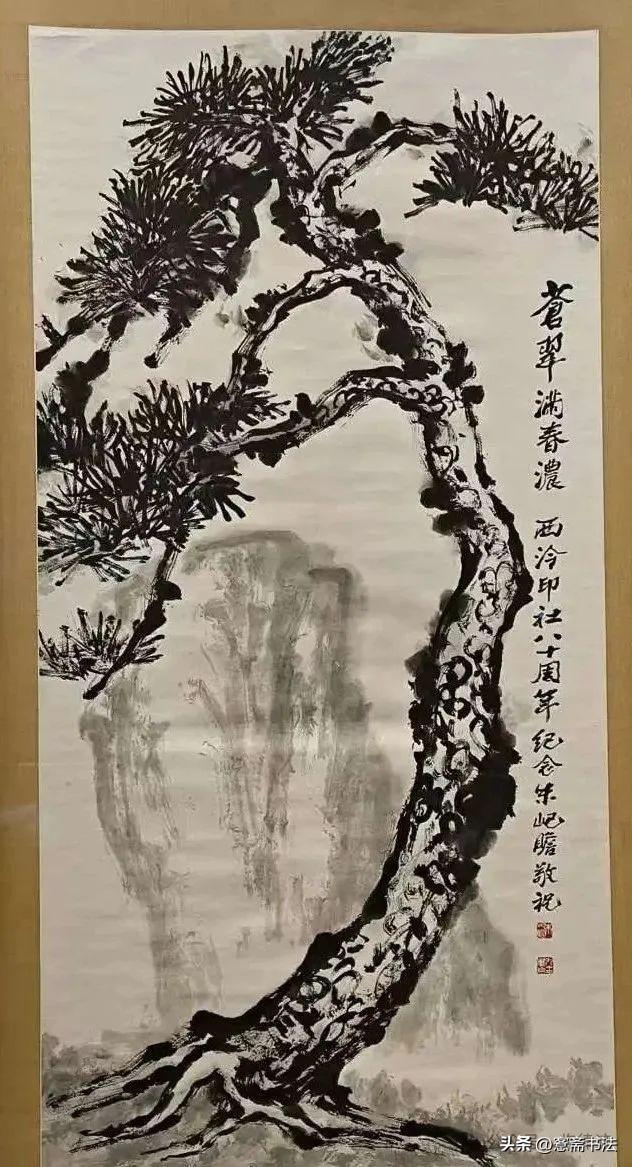 蒼翠滿春濃 西泠印社八十周年纪念朱屺瞻敬祝
头条 @愙斋书法